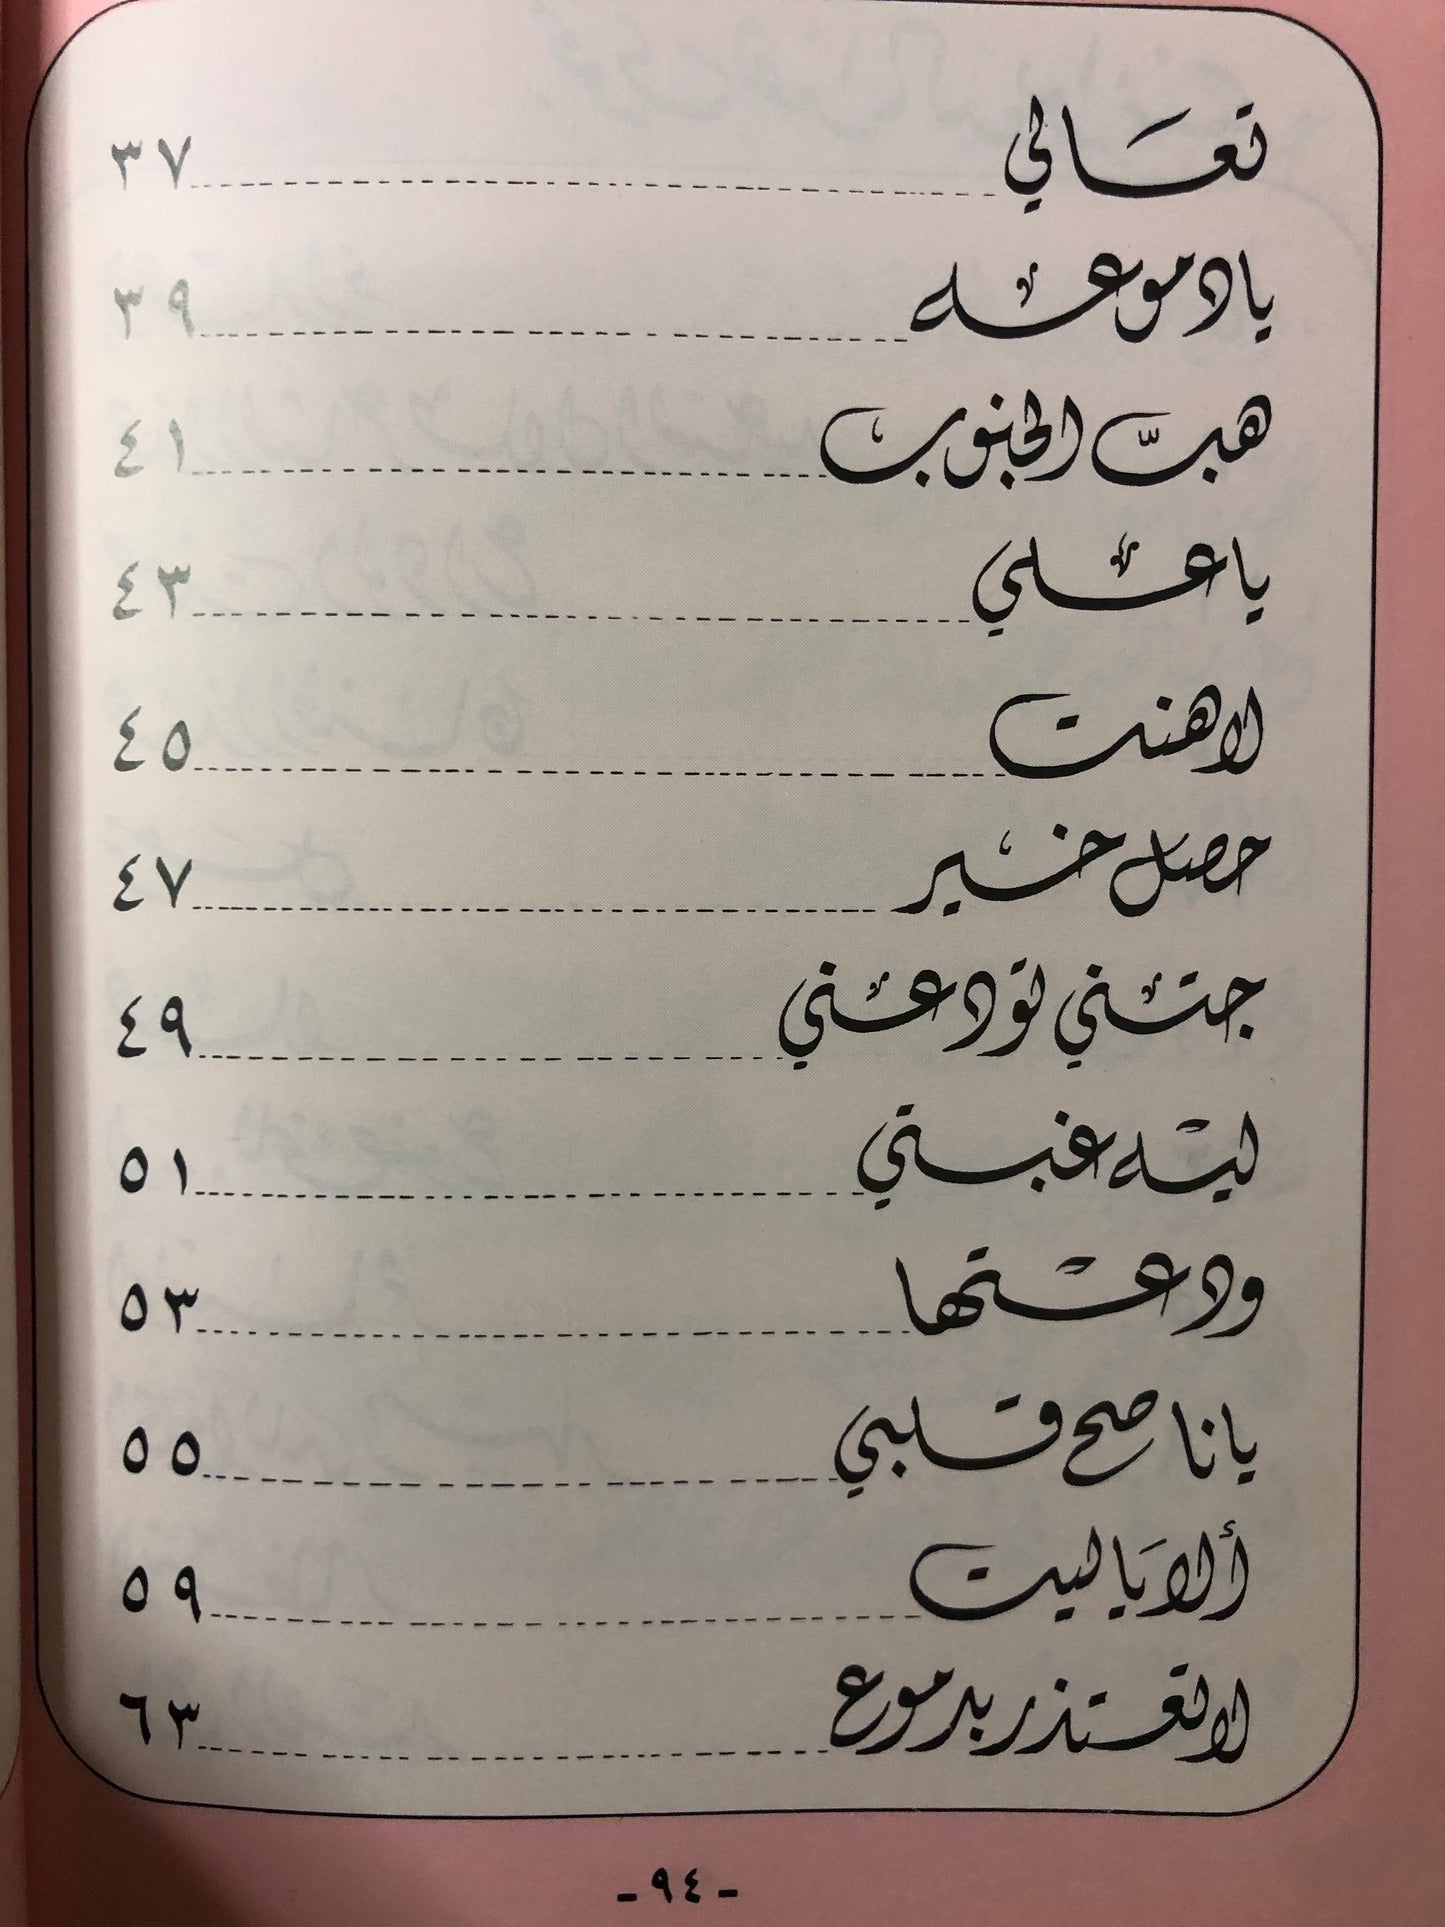 تعَالي ٣٧
يا دموعه ٣٩
هبّت الجنوب ٤١
يا علي ٤٣
لا هنت ٤٥
حصل خير ٤٧
جتني تودعني ٤٩
ليه غبتي ٥١
ودعتها ٥٣
يا ناصح قلبي ٥٥
ألا يَا ليت ٥٩
لا تعتذر بدموع ٦٣
- ٩٤ -